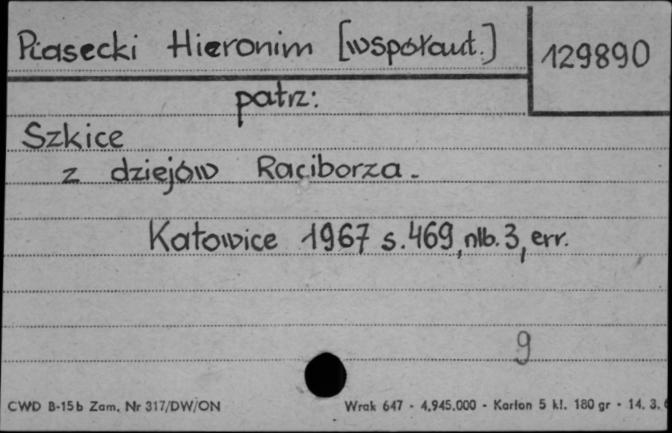 Piasecki Hieronim [współaut.]
129890
patrz:
Szkice
z dziejów Raciborza.
Katowice 1967 s. 469, nlb. 3, err.
9
CWD B-15b Zam. Nr 317/DW/ON
Wrak 647 - 4.945.000 - Karton 5 kl. 180 gr - 14. 3.